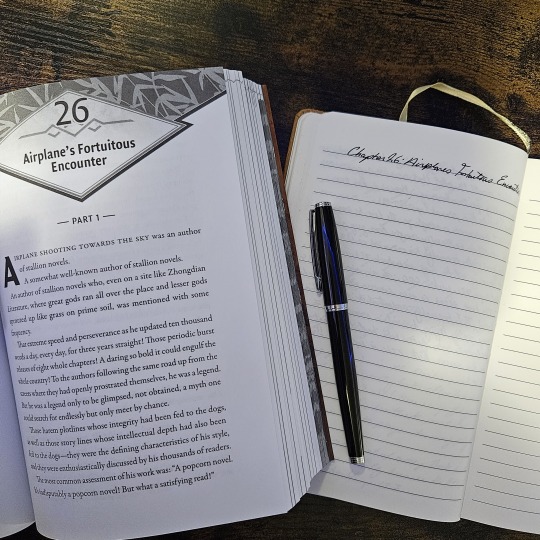 26
Airplane's Fortuitous
Encounter
— PART 1 —
AIRPLANE SHOOTING TOWARDS THE SKY was an author
of stallion novels.
A somewhat well-known author of stallion novels.
An author of stallion novels who, even on a site like Zhongdian
Literature, where great gods ran all over the place and lesser gods
sprouted up like grass on prime soil, was mentioned with some
frequency.
That extreme speed and perseverance as he updated ten thousand
words a day, every day, for three years straight! Those periodic burst
releases of eight whole chapters! A daring so bold it could engulf the
whole country! To the authors following the same road up from the
streets where they had openly prostrated themselves, he was a legend.
But he was a legend only to be glimpsed, not obtained, a myth one
could search for endlessly but only meet by chance.
Those harem plotlines whose integrity had been fed to the dogs,
as well as those story lines whose intellectual depth had also been
fed to the dogs—they were the defining characteristics of his style,
and they were enthusiastically discussed by his thousands of readers.
The most common assessment of his work was: "A popcorn novel.
It's indisputably a popcorn novel! But what a satisfying read!"
Chapter 26: Airplanes Fortuitous